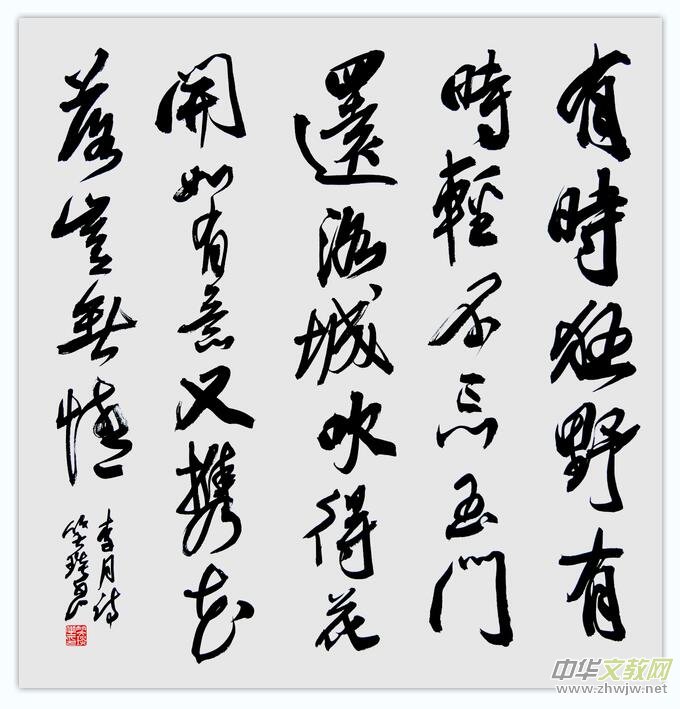 有時狂野有
時輕不忘玉門
還洛城吹得花
開如有意又攜花
落豈無情
李月诗
中华文教网
www.zhwjw.net